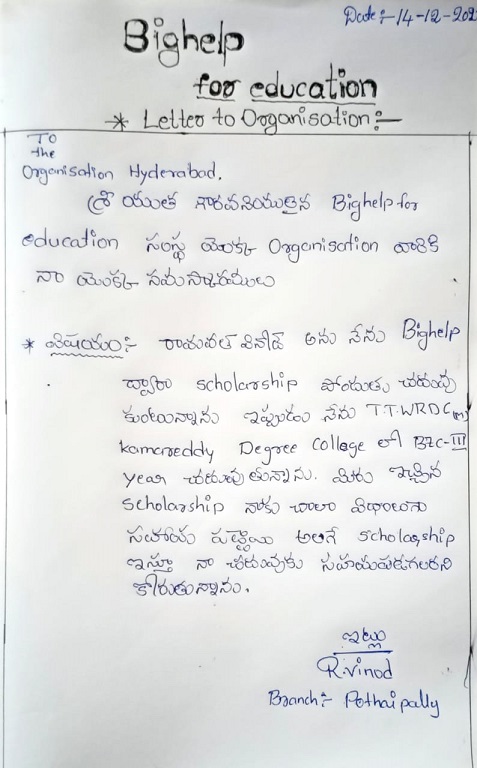 Date :- 14-12-202
Bighelp
for education
* Letter to Organisation :-
To
the
Organisation Hyderabad.
శ్రీ యుత గౌరవనియులైన Bighelp for
education సంస్థ యొక్క Organisation వారికి
నా యొక్క నమస్కారములు
* విషయం :- రామవత్ వినోద్ అను నేను Bighelp
ద్వారా scholarship పొందుతు చదువు
కుంటున్నాను ఇప్పుడు నేను T.T.WRDC(m)
kamareddy Degree College లో BZC-III
year చదువు తున్నాను. మీరు ఇచ్చిన
scholarship నాకు చాలా విధాలుగా
సహాయ పడ్డాయి అలానే scholarship
ఇస్తూ నా చదువుకు సహయపడగలరని
కోరుతున్నాను.
ఇట్లు
R.vinod
Branch :- Pothaipally